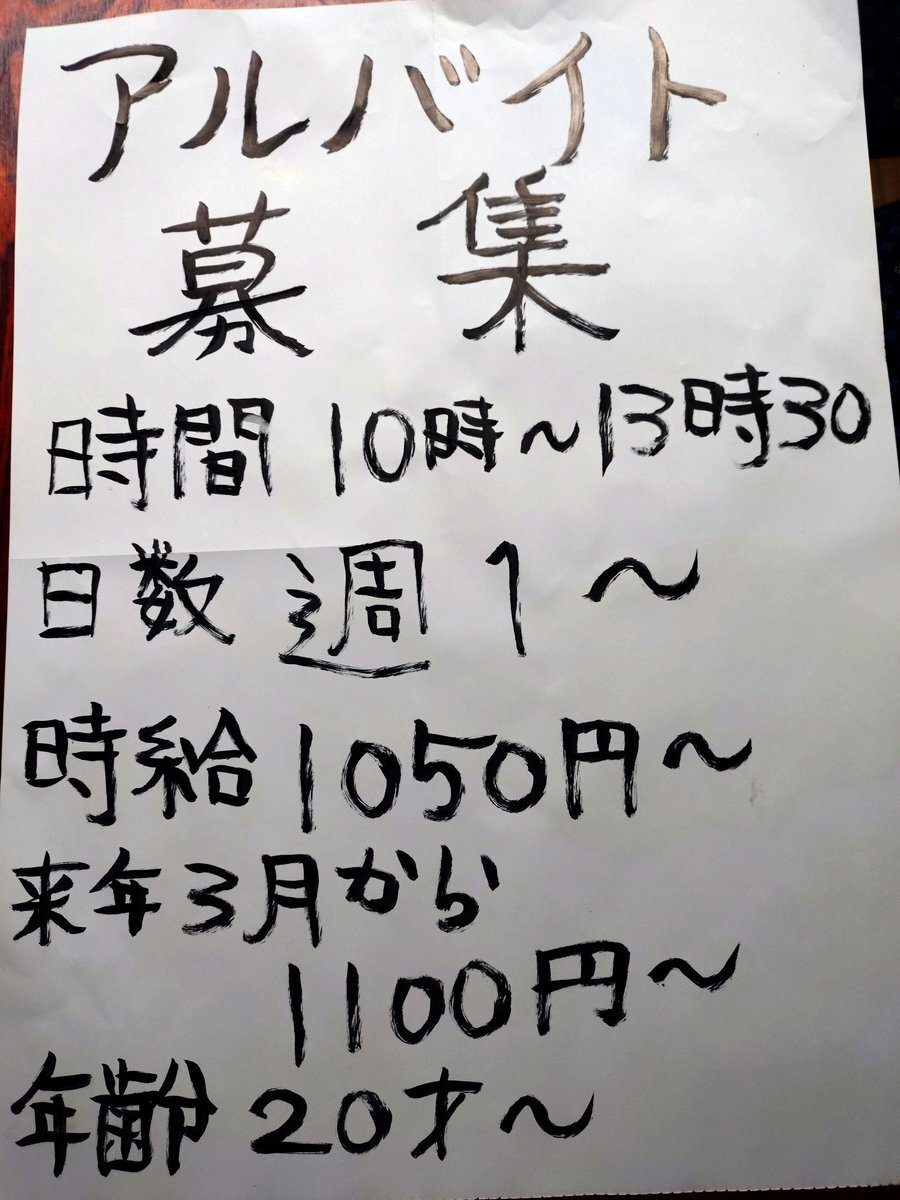 アルバイト
募集
時間 10時～13時30
日数 週1～
時給 1050円～
来年3月から
1100円～
年齢 20才～